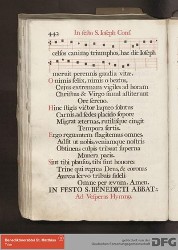 442 In festo S. Ioseph Conf.
cessos canimus triumphos, hac die Ioseph
meruit perennis gaudia vitæ.
O nimis felix, nimis o beatus,
Cujus extremam vigiles ad horam
Christus & Virgo simul astiterunt
Ore sereno.
Hinc stygis victor laqueo solutus
Carnis ad sedes placido sopore
Migrat æternas, rutilisque cingit
Tempora sertis.
Ergo regnantem flagitemus omnes
Adsit ut nobis, veniamque nostris
Obtinens culpis tribuat supernæ
Munera pacis.
Sint tibi plausus, tibi sint honores
Trine qui regnas Deus, & coronas
Aureas servo tribuis fideli
Omne per ævum. Amen.
IN FESTO S. BENEDICTI ABBAT:
Ad Vesperas Hymnus
DFG